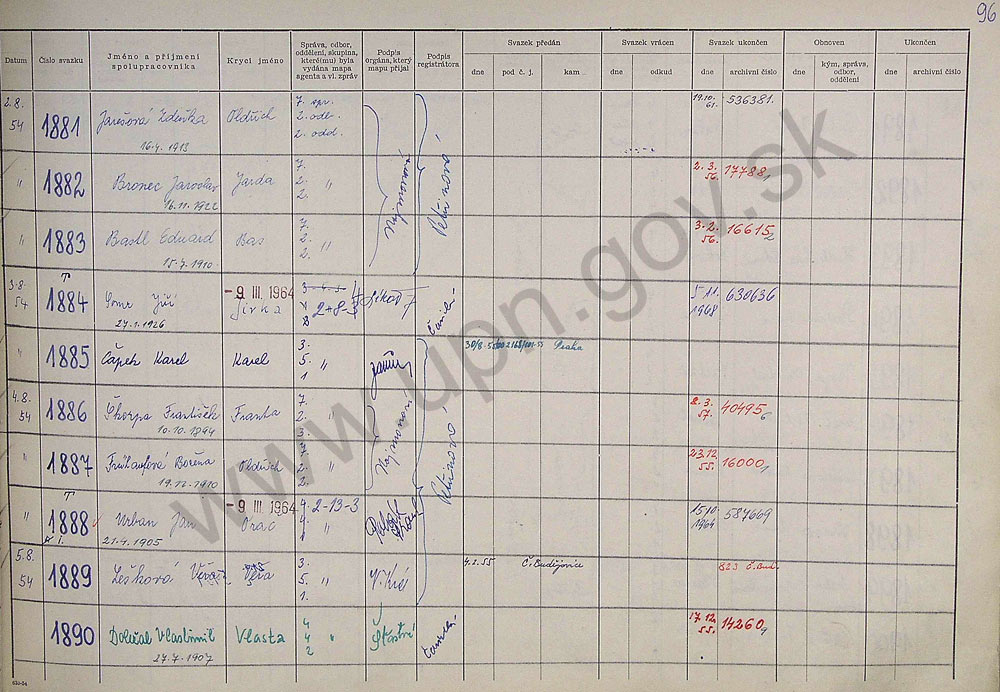 96
Datum Číslo svazku Jméno a příjmení spolupracovníka Krycí jméno Správa, odbor, oddělení, skupina, které(mu) byla vydána mapa agenta a vl. zpráv Podpis orgána, který mapu přijal Podpis registrátora Svazek předán Svazek vrácen Svazek ukončen Obnoven Ukončen
dne pod č. j. kam dne odkud dne archivní číslo dne kým, správa, odbor, oddělení dne archivní číslo
2.8. 54 1881 Jarešová Zdeňka Oldřich 7. spr. 2. odb. 2. odd. 19.10. 61. 536381.
16.4. 1913
" 1882 Bronec Jaroslav Jarda 7. 2. " 2. 2. 3. 56. 17788
16.11.1922
" 1883 Bastl Eduard Bas 7. 2. " 2. 3. 2. 56. 16615 2
15.7.1910
3.8. 54 1884 Jiří - 9 III. 1964 Jirka 2+8-3 5 11. 1968 630636
27.1.1926
" 1885 Čapek Karel Karel 3. 5. " 1 Praha
4.8. 54 1886 Škorpa František Franta 7. 2. " 3. 2. 3. 57. 40495 6
10.10.1894
" 1887 Frühaufová Božena Oldřich 7. 2. " 2. 23.12. 55. 16000
1910
" 1888 Urban Jan - 9 III. 1964 Orac 4. 2-13-3 4. " 1510 1964 587669
21.4.1905
5.8. 54 1889 Lešková Věra 3. 5. " 1. 4.2.55 Č. Budějovice 823 Č. Bud.
1890 Doležal Vlastimil Vlasta 4 4 " 2 Šťastný 17. 12. 55. 14260 9
27.7.1907
Najmonová
Petrinová
www.upn.gov.sk